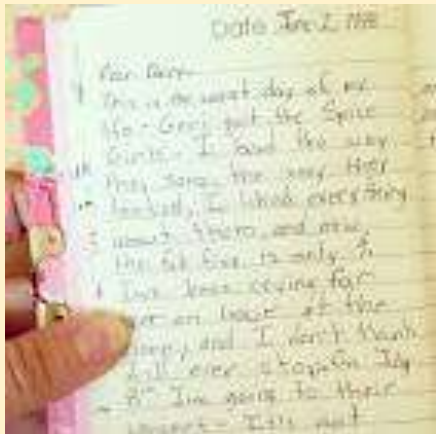 Date June 2, 1998
Dear Diary
This is the worst day of my
life - Geri quit the Spice
Girls. I loved the way
they sang, the way they
looked, I liked everything
about them, and now,
the fab five is only 4.
I've been crying for
over an hour at the
and I don't think
I'll ever stop. On July
8th I'm going to their
concert - It's not